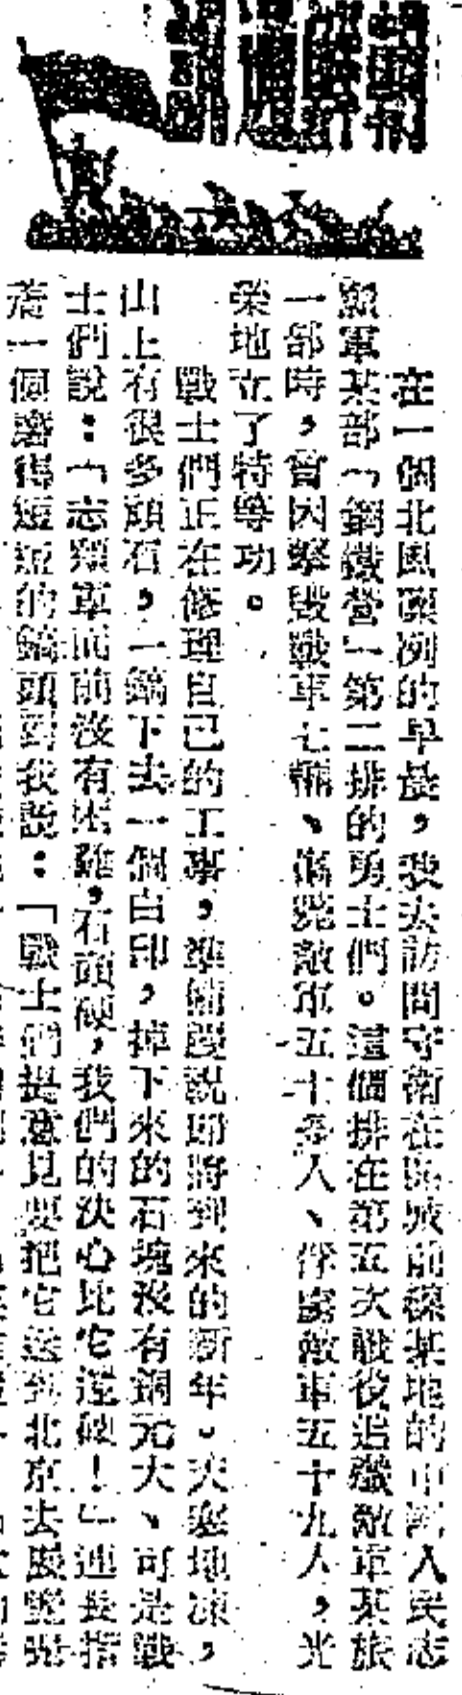 在一個北風凜冽的早晨，我去訪問守衛在開城前線某地的中國人民志
願軍某部「鋼鐵營」第二排的勇士們。這個排在第五次戰役追殲敵軍某旅
一部時，曾因擊毀戰車七輛、傷斃敵軍五十多人、俘虜敵軍五十九人，光
榮地立了特等功。
戰士們正在修理自己的工事，準備慶祝即將到來的新年。天寒地凍，
山上有很多頑石，一鎬下去一個白印，掉下來的石塊沒有銅元大、可是戰
士們說：「志願軍面前沒有困難，石頭硬，我們的決心比它還硬！」連長指
着一個磨得短短的鎬頭對我說：「戰士們提意見要把它送到北京去展覽